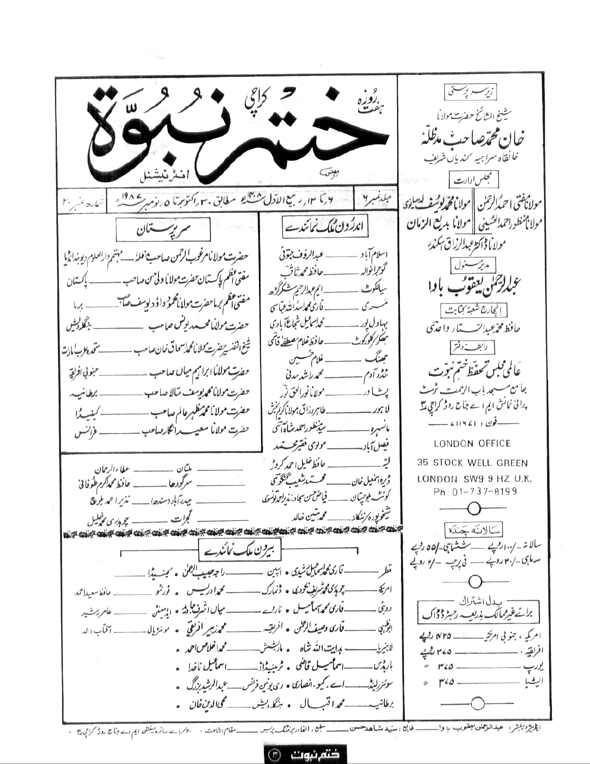 ہفت روزہ
ختم نبوۃ
کراچی
انٹرنیشنل
جلد نمبر ۶
۶ تا ۱۲ ربیع الاول ۱۴۰۸ھ مطابق ۳۰ اکتوبر تا ۵ نومبر ۱۹۸۷ء
شمارہ نمبر ۲۰
زیر سرپرستی
شیخ المشائخ حضرت مولانا
خان محمد صاحب مدظلہ
خانقاہ سراجیہ کندیاں شریف
مجلس ادارت
مولانا مفتی احمد الرحمٰن مولانا محمد یوسف لدھیانوی
مولانا منظور احمد الحسینی مولانا بدیع الزمان
مولانا ڈاکٹر عبدالرزاق سکندر
مدیر مسئول
عبدالرحمٰن یعقوب باوا
انچارج شعبہ کتابت
حافظ محمد عبدالستار واحدی
رابطہ دفتر
عالمی مجلس تحفظ ختم نبوت
جامع مسجد باب الرحمت ٹرسٹ
پرانی نمائش ایم اے جناح روڈ کراچی ۳
فون : ۷۱۱۶۷۱
LONDON OFFICE
35 STOCK WELL GREEN
LONDON SW9 9 HZ U.K.
Ph: 01-737-8199
سالانہ چندہ
سالانہ ۱۰۰ روپے ششماہی ۵۵ روپے
سہ ماہی ۳۰ روپے فی پرچہ ۲ روپے
بدل اشتراک
برائے غیر ممالک بذریعہ رجسٹرڈ ڈاک
امریکہ، جنوبی امریکہ ۴۲۵ روپے
افریقہ ۳۷۵ روپے
یورپ ۳۷۵ "
ایشیا ۳۷۵ "
سرپرستان
حضرت مولانا مرغوب الرحمٰن صاحب مدظلہ مہتمم دارالعلوم دیوبند انڈیا
مفتی اعظم پاکستان حضرت مولانا ولی حسن صاحب پاکستان
مفتی اعظم برما حضرت مولانا محمود داؤد یوسف صاحب برما
حضرت مولانا محمد یونس صاحب بنگلہ دیش
شیخ التفسیر حضرت مولانا محمد اسحاق خان صاحب متحدہ عرب امارات
حضرت مولانا ابراہیم میاں صاحب جنوبی افریقہ
حضرت مولانا محمد یوسف متالا صاحب برطانیہ
حضرت مولانا محمد مظہر عالم صاحب کینیڈا
حضرت مولانا سعید انگار صاحب فرانس
اندرون ملک نمائندے
اسلام آباد عبدالرؤف جتوئی
گوجرانوالہ حافظ محمد ثاقب
سیالکوٹ ایم عبدالرحیم شکرگڑھ
مری قاری محمد اسداللہ عباسی
بہاول پور محمد اسماعیل شجاع آبادی
بھکر کلورکوٹ حافظ غلام مصطفےٰ قاسمی
جھنگ غلام حسین
ٹنڈو آدم محمد راشد مدنی
پشاور مولانا نور الحق نور
لاہور طاہر رزاق، مولانا کریم بخش
مانسہرہ سید منظور احمد شاہ آسی
فیصل آباد مولوی فقیر محمد
لیہ حافظ خلیل احمد کروڑ
ڈیرہ اسمٰعیل خان محمد شعیب گنگوہی
کوئٹہ بلوچستان فیاض حسن سجاد، نذیر احمد تونسوی
شیخوپورہ/ننکانہ محمد متین خالد
ملتان عطاء الرحمان
سرگودھا حافظ محمد اکرم طوفانی
حیدرآباد (سندھ) نذیر احمد بلوچ
گجرات چوہدری محمد خلیل
بیرون ملک نمائندے
قطر قاری محمد اسماعیل شیدی • اسپین راجہ حبیب الرحمٰن • کینیڈا
امریکہ چوہدری محمد شریف نکودری • ڈنمارک محمد ادریس • ٹورنٹو حافظ سعید احمد
دوبئی قاری محمد اسماعیل • ناروے میاں اشرف جاوید • ایڈمنٹن عامر رشید
ابوظبی قاری وصیف الرحمٰن • افریقہ محمد زبیر افریقی • مونٹریال آفتاب احمد
لائبیریا ہدایت اللہ شاہ • ماریشش محمد اخلاص احمد •
بارباڈس اسماعیل قاضی • ٹرینیڈاڈ اسماعیل ناخدا •
سوئزرلینڈ اے۔ کیو۔ انصاری • ری یونین فرانس عبدالرشید بزرگ •
برطانیہ محمد اقبال • بنگلہ دیش محی الدین خان •
ایڈیٹر و پبلشر : عبدالرحمٰن یعقوب باوا طابع : سید شاہد حسن مطبع : القادر پرنٹنگ پریس مقام اشاعت : سائرہ مینشن ایم اے جناح روڈ کراچی ۳
ختم نبوت
۳